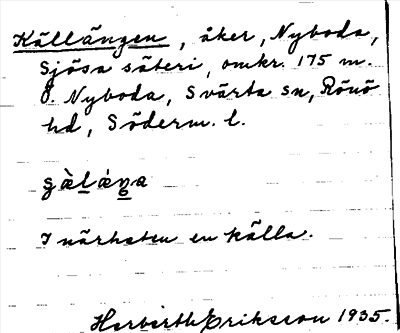 Källängen, åker, Nyboda,
Sjösa säteri, omkr. 175 m.
Ö. Nyboda, Svärta sn, Rönö
hd, Söderm. l.
I närheten en källa.
Herbert Eriksson 1935.